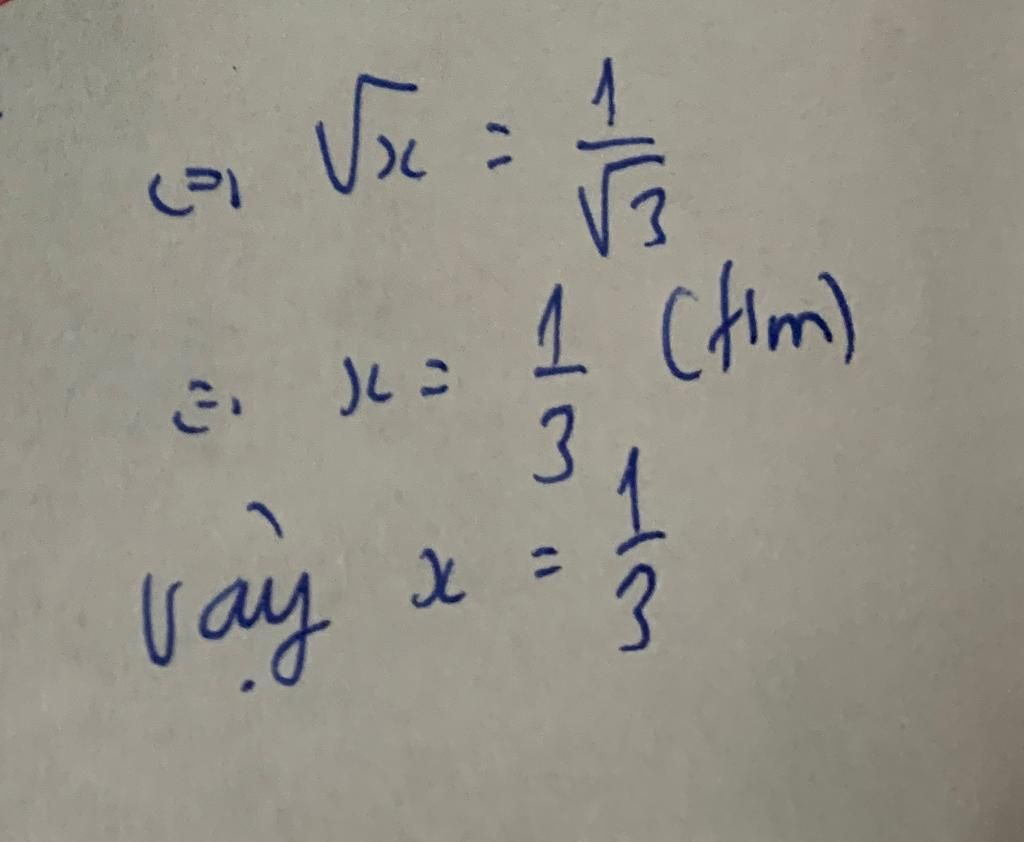 ⇔ √x = 1/√3
⇔ x = 1/3 (t/m)
Vậy x = 1/3